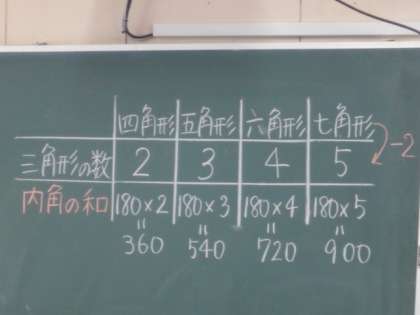 四角形 五角形 六角形 七角形
三角形の数 2 3 4 5 -2
内角の和 180×2 180×3 180×4 180×5
= = = =
360 540 720 900